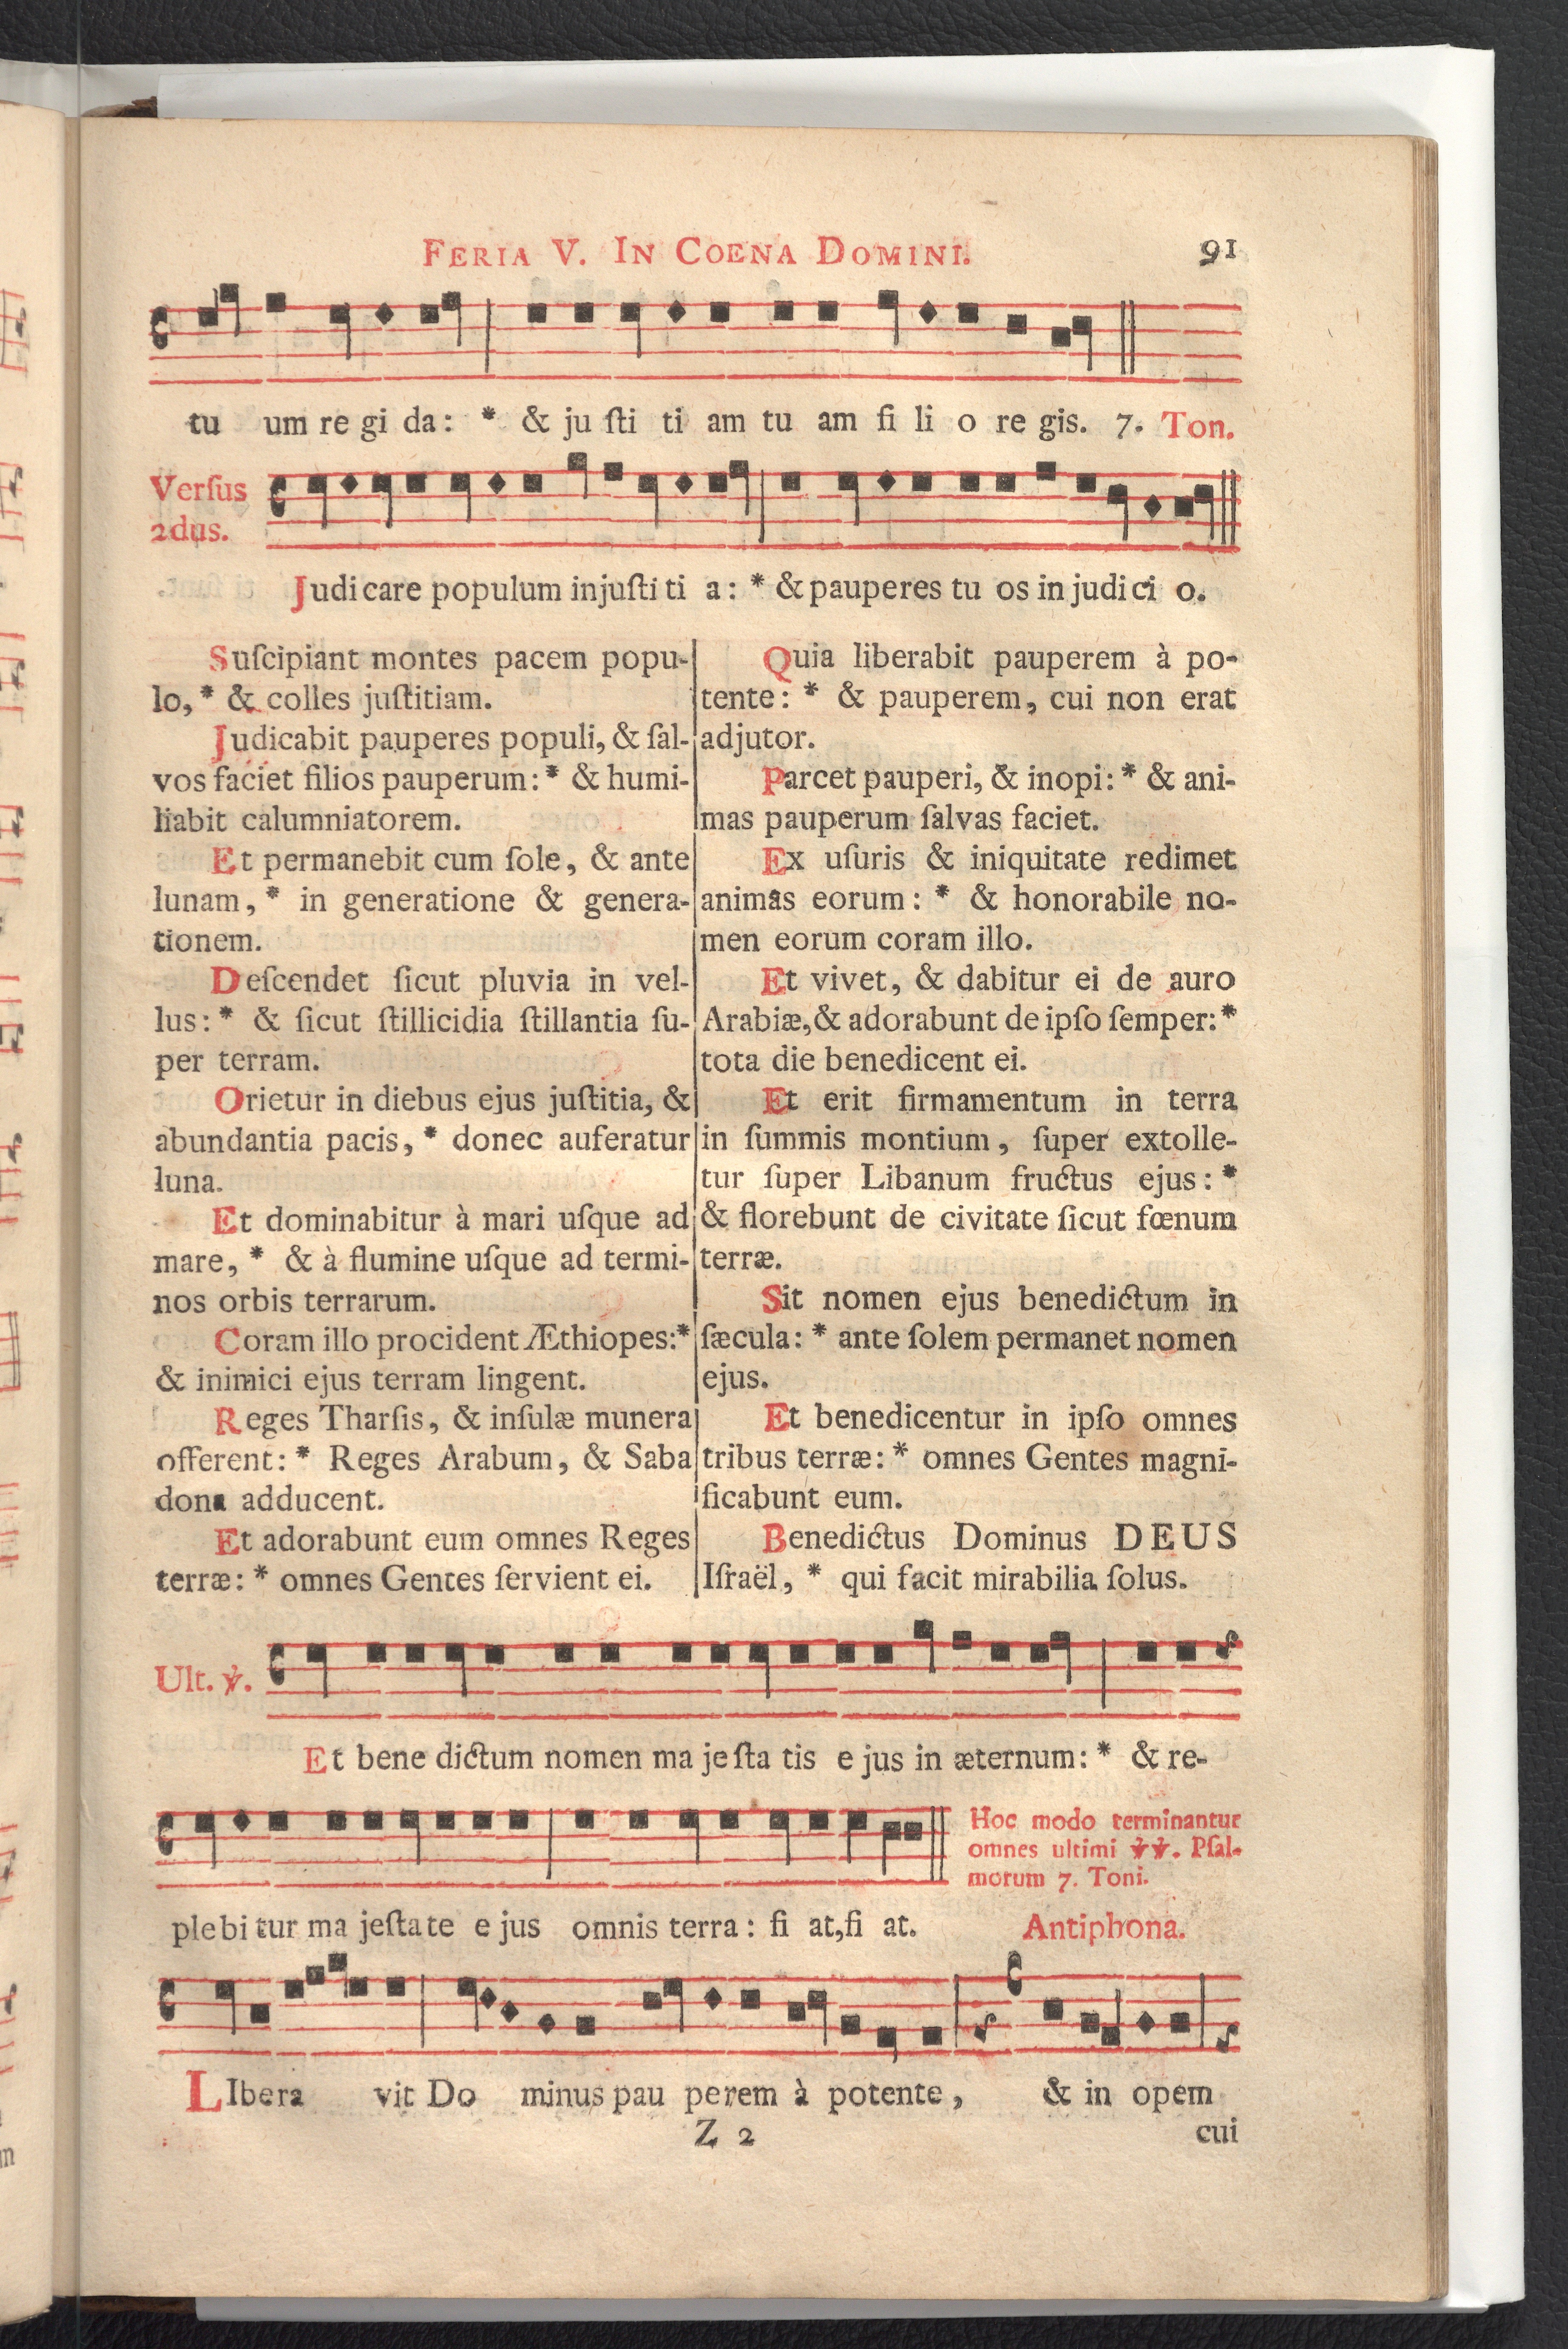 FERIA V. IN COENA DOMINI. 91
tu um re gi da: * & ju ſti ti am tu am fi li o re gis. 7. Ton.
Verſus
2dus.
Judi care populum injuſti ti a: * & pauperes tu os in judi ci o.
Suſcipiant montes pacem popu-
lo, * & colles juſtitiam.
Judicabit pauperes populi, & ſal-
vos faciet filios pauperum: * & humi-
liabit calumniatorem.
Et permanebit cum ſole, & ante
lunam, * in generatione & genera-
tionem.
Deſcendet ſicut pluvia in vel-
lus: * & ſicut ſtillicidia ſtillantia ſu-
per terram.
Orietur in diebus ejus juſtitia, &
abundantia pacis, * donec auferatur
luna.
Et dominabitur à mari uſque ad
mare, * & à flumine uſque ad termi-
nos orbis terrarum.
Coram illo procident Æthiopes: *
& inimici ejus terram lingent.
Reges Tharſis, & inſulæ munera
offerent: * Reges Arabum, & Saba
dona adducent.
Et adorabunt eum omnes Reges
terræ: * omnes Gentes ſervient ei.
Quia liberabit pauperem à po-
tente: * & pauperem, cui non erat
adjutor.
Parcet pauperi, & inopi: * & ani-
mas pauperum ſalvas faciet.
Ex uſuris & iniquitate redimet
animas eorum: * & honorabile no-
men eorum coram illo.
Et vivet, & dabitur ei de auro
Arabiæ, & adorabunt de ipſo ſemper: *
tota die benedicent ei.
Et erit firmamentum in terra
in ſummis montium, ſuper extolle-
tur ſuper Libanum fructus ejus: *
& florebunt de civitate ſicut fœnum
terræ.
Sit nomen ejus benedictum in
ſæcula: * ante ſolem permanet nomen
ejus.
Et benedicentur in ipſo omnes
tribus terræ: * omnes Gentes magni-
ficabunt eum.
Benedictus Dominus DEUS
Iſraël, * qui facit mirabilia ſolus.
Ult. ℣.
Et bene dictum nomen ma je ſta tis e jus in æternum: * & re-
Hoc modo terminantur
omnes ultimi ℣℣. Pſal-
morum 7. Toni.
plebi tur ma jeſta te e jus omnis terra: fi at, fi at. Antiphona.
LIbera vit Do minus pau perem à potente, & in opem
Z 2 cui